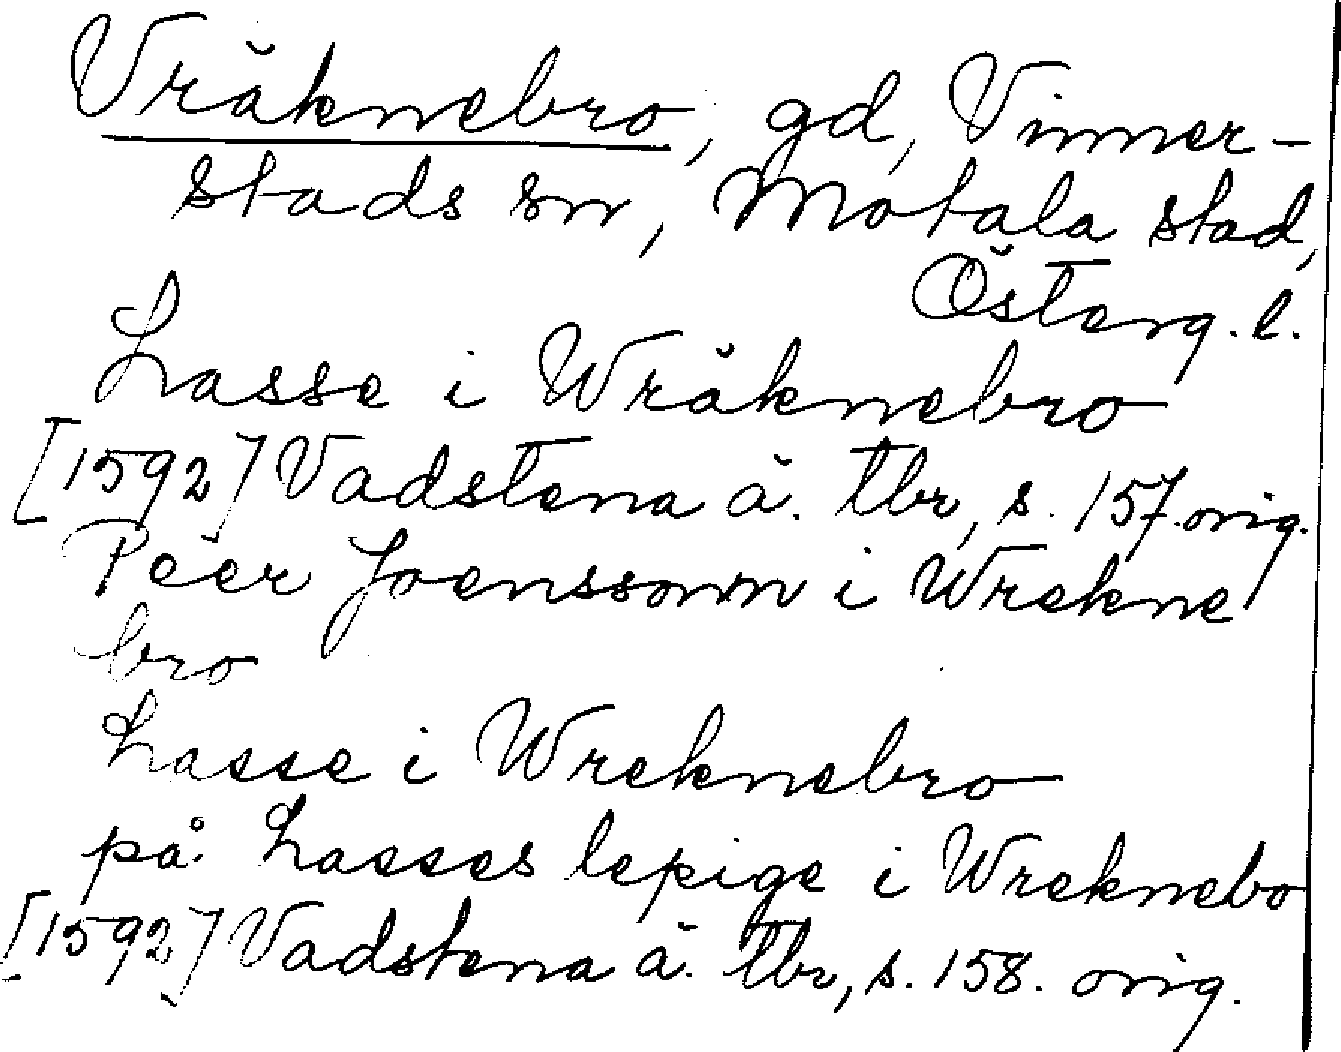 Vräknebro, gd, Vinner-
stads sn, Motala stad,
Österg. l.
Lasse i Wräknebro
[1592] Vadstena ä. tbr, s. 157. orig.
Peer Joenssonn i Wrekne
bro
Lasse i Wreknebro
på Lasses lepige i Wreknebo
[1592] Vadstena ä. tbr, s. 158. orig.